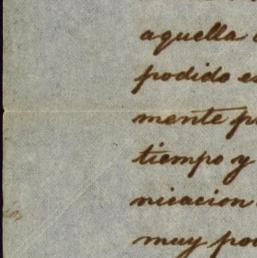 aquella
podido es
mente p
tiempo y
nicacion
muy po